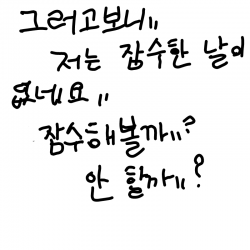 그러고보니〃
저는 잠수한 날이
없네요〃
잠수해볼까〃?
안 할까〃?